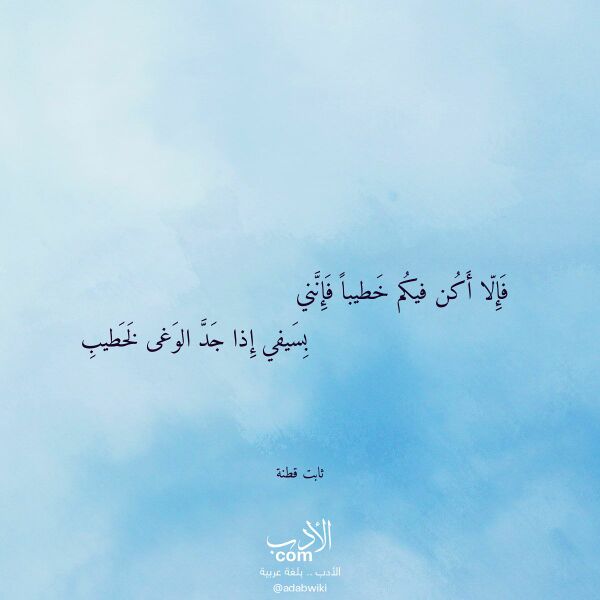 فَإِلّا أَكُن فيكُم خَطيباً فَإِنَّني
بِسَيفي إِذا جَدَّ الوَغى لَخَطيبِ
ثابت قطنة
الأدب
com
الأدب .. بلغة عربية
@adabwiki